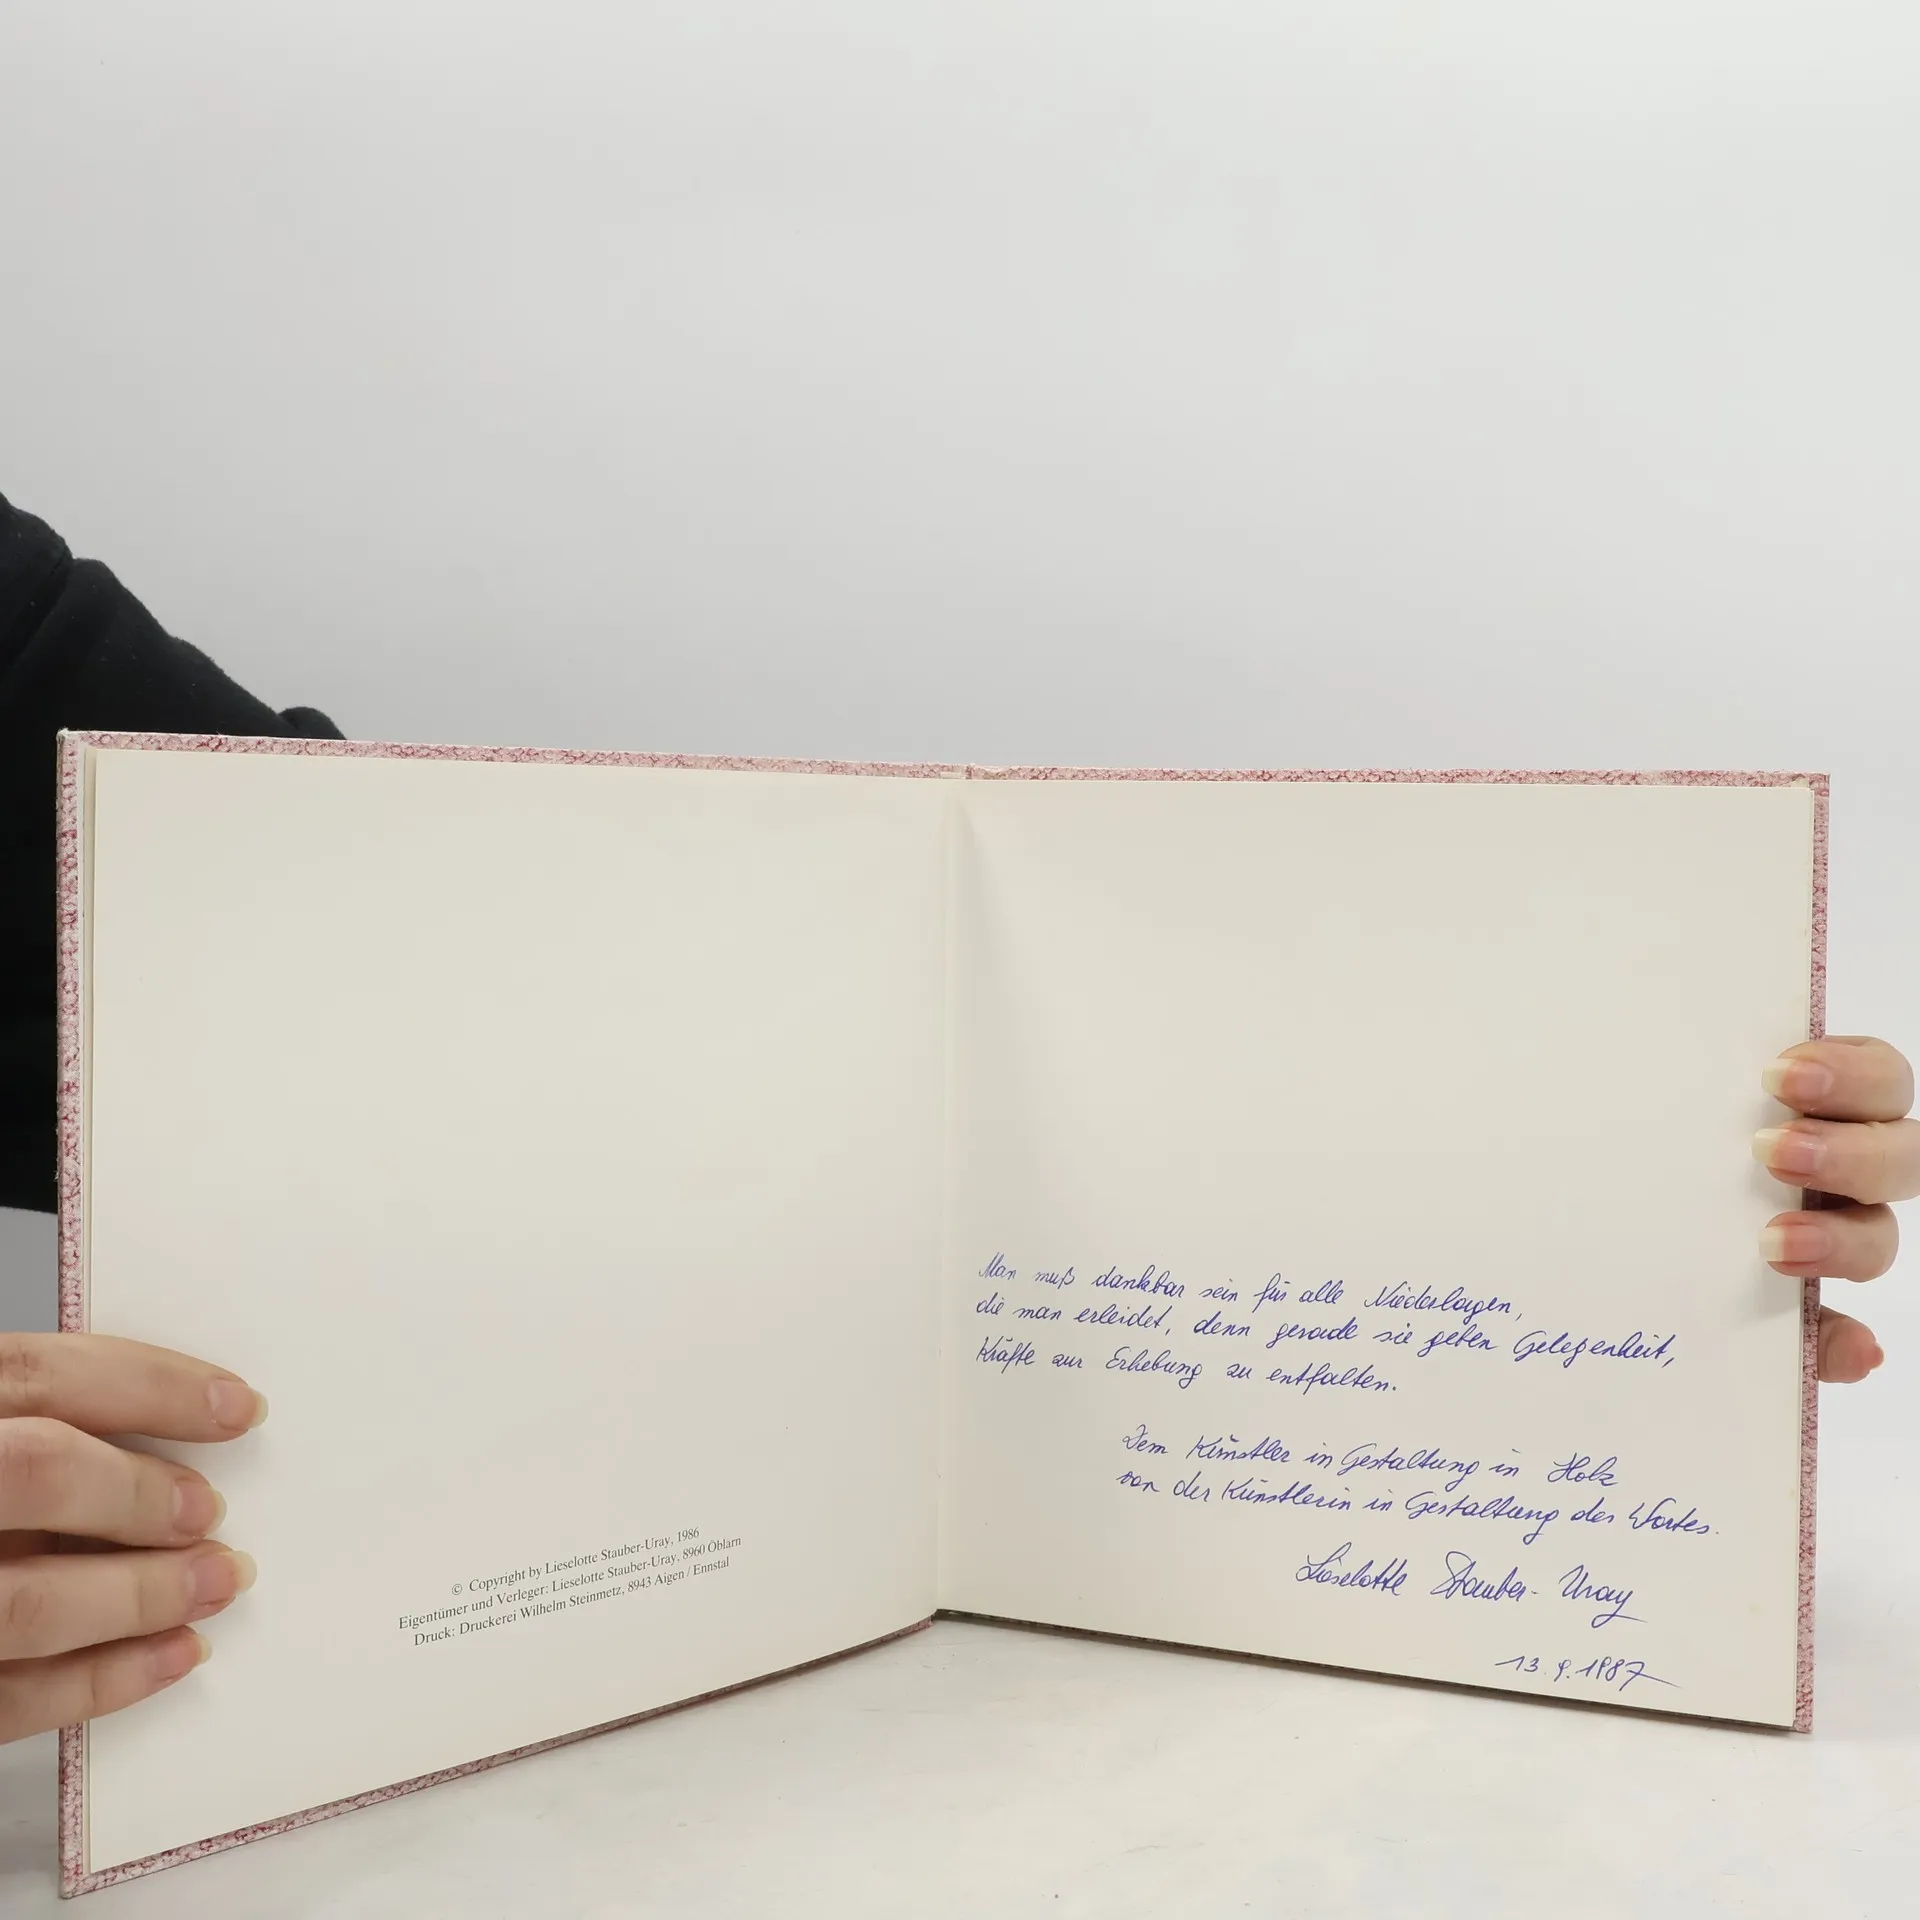 © Copyright by Lieselotte Stauber-Uray, 1986
Eigentümer und Verleger: Lieselotte Stauber-Uray, 8960 Öblarn
Druck: Druckerei Wilhelm Steinmetz, 8943 Aigen / Ennstal
Man muß dankbar sein für alle Niederlagen,
die man erleidet, denn gerade sie geben Gelegenheit,
Kräfte zur Erhebung zu entfalten.
Dem Künstler in Gestaltung in Holz
von der Künstlerin in Gestaltung des Wortes.
Lieselotte Stauber-Uray
13.9.1987